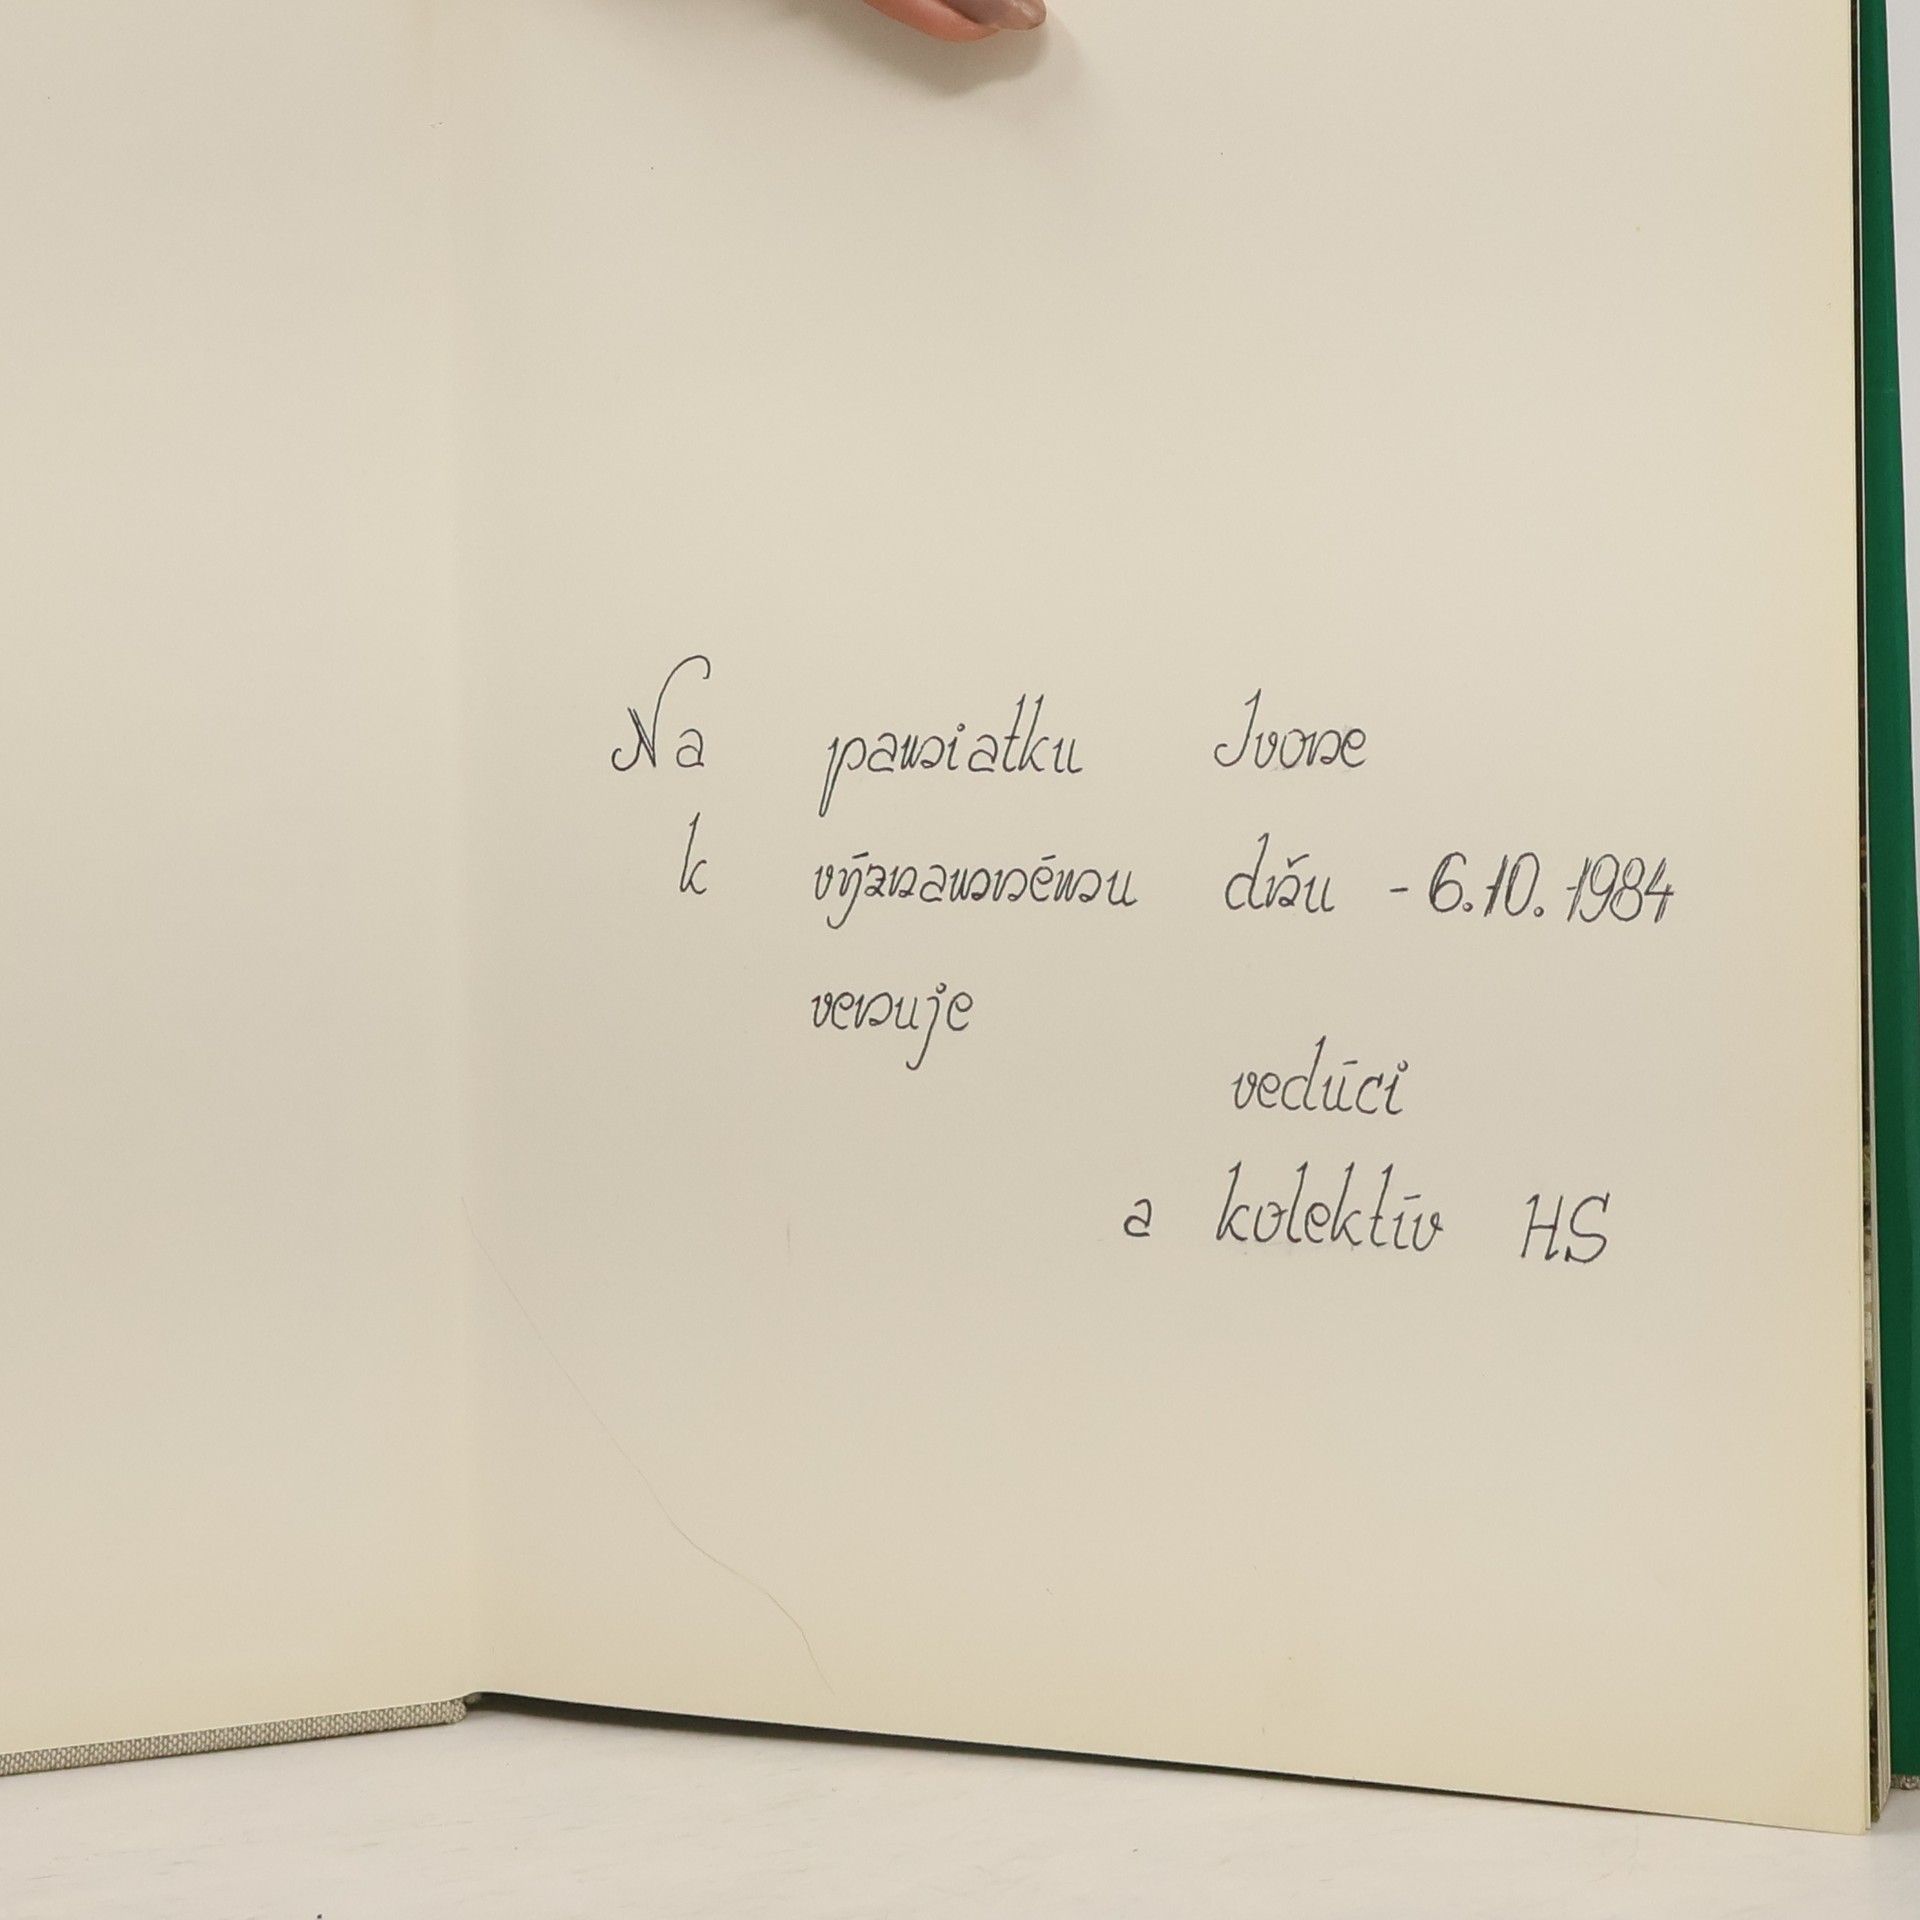 Na pamiatku Ivone
k významnému dňu - 6.10.1984
venuje
vedúci
a kolektív HS